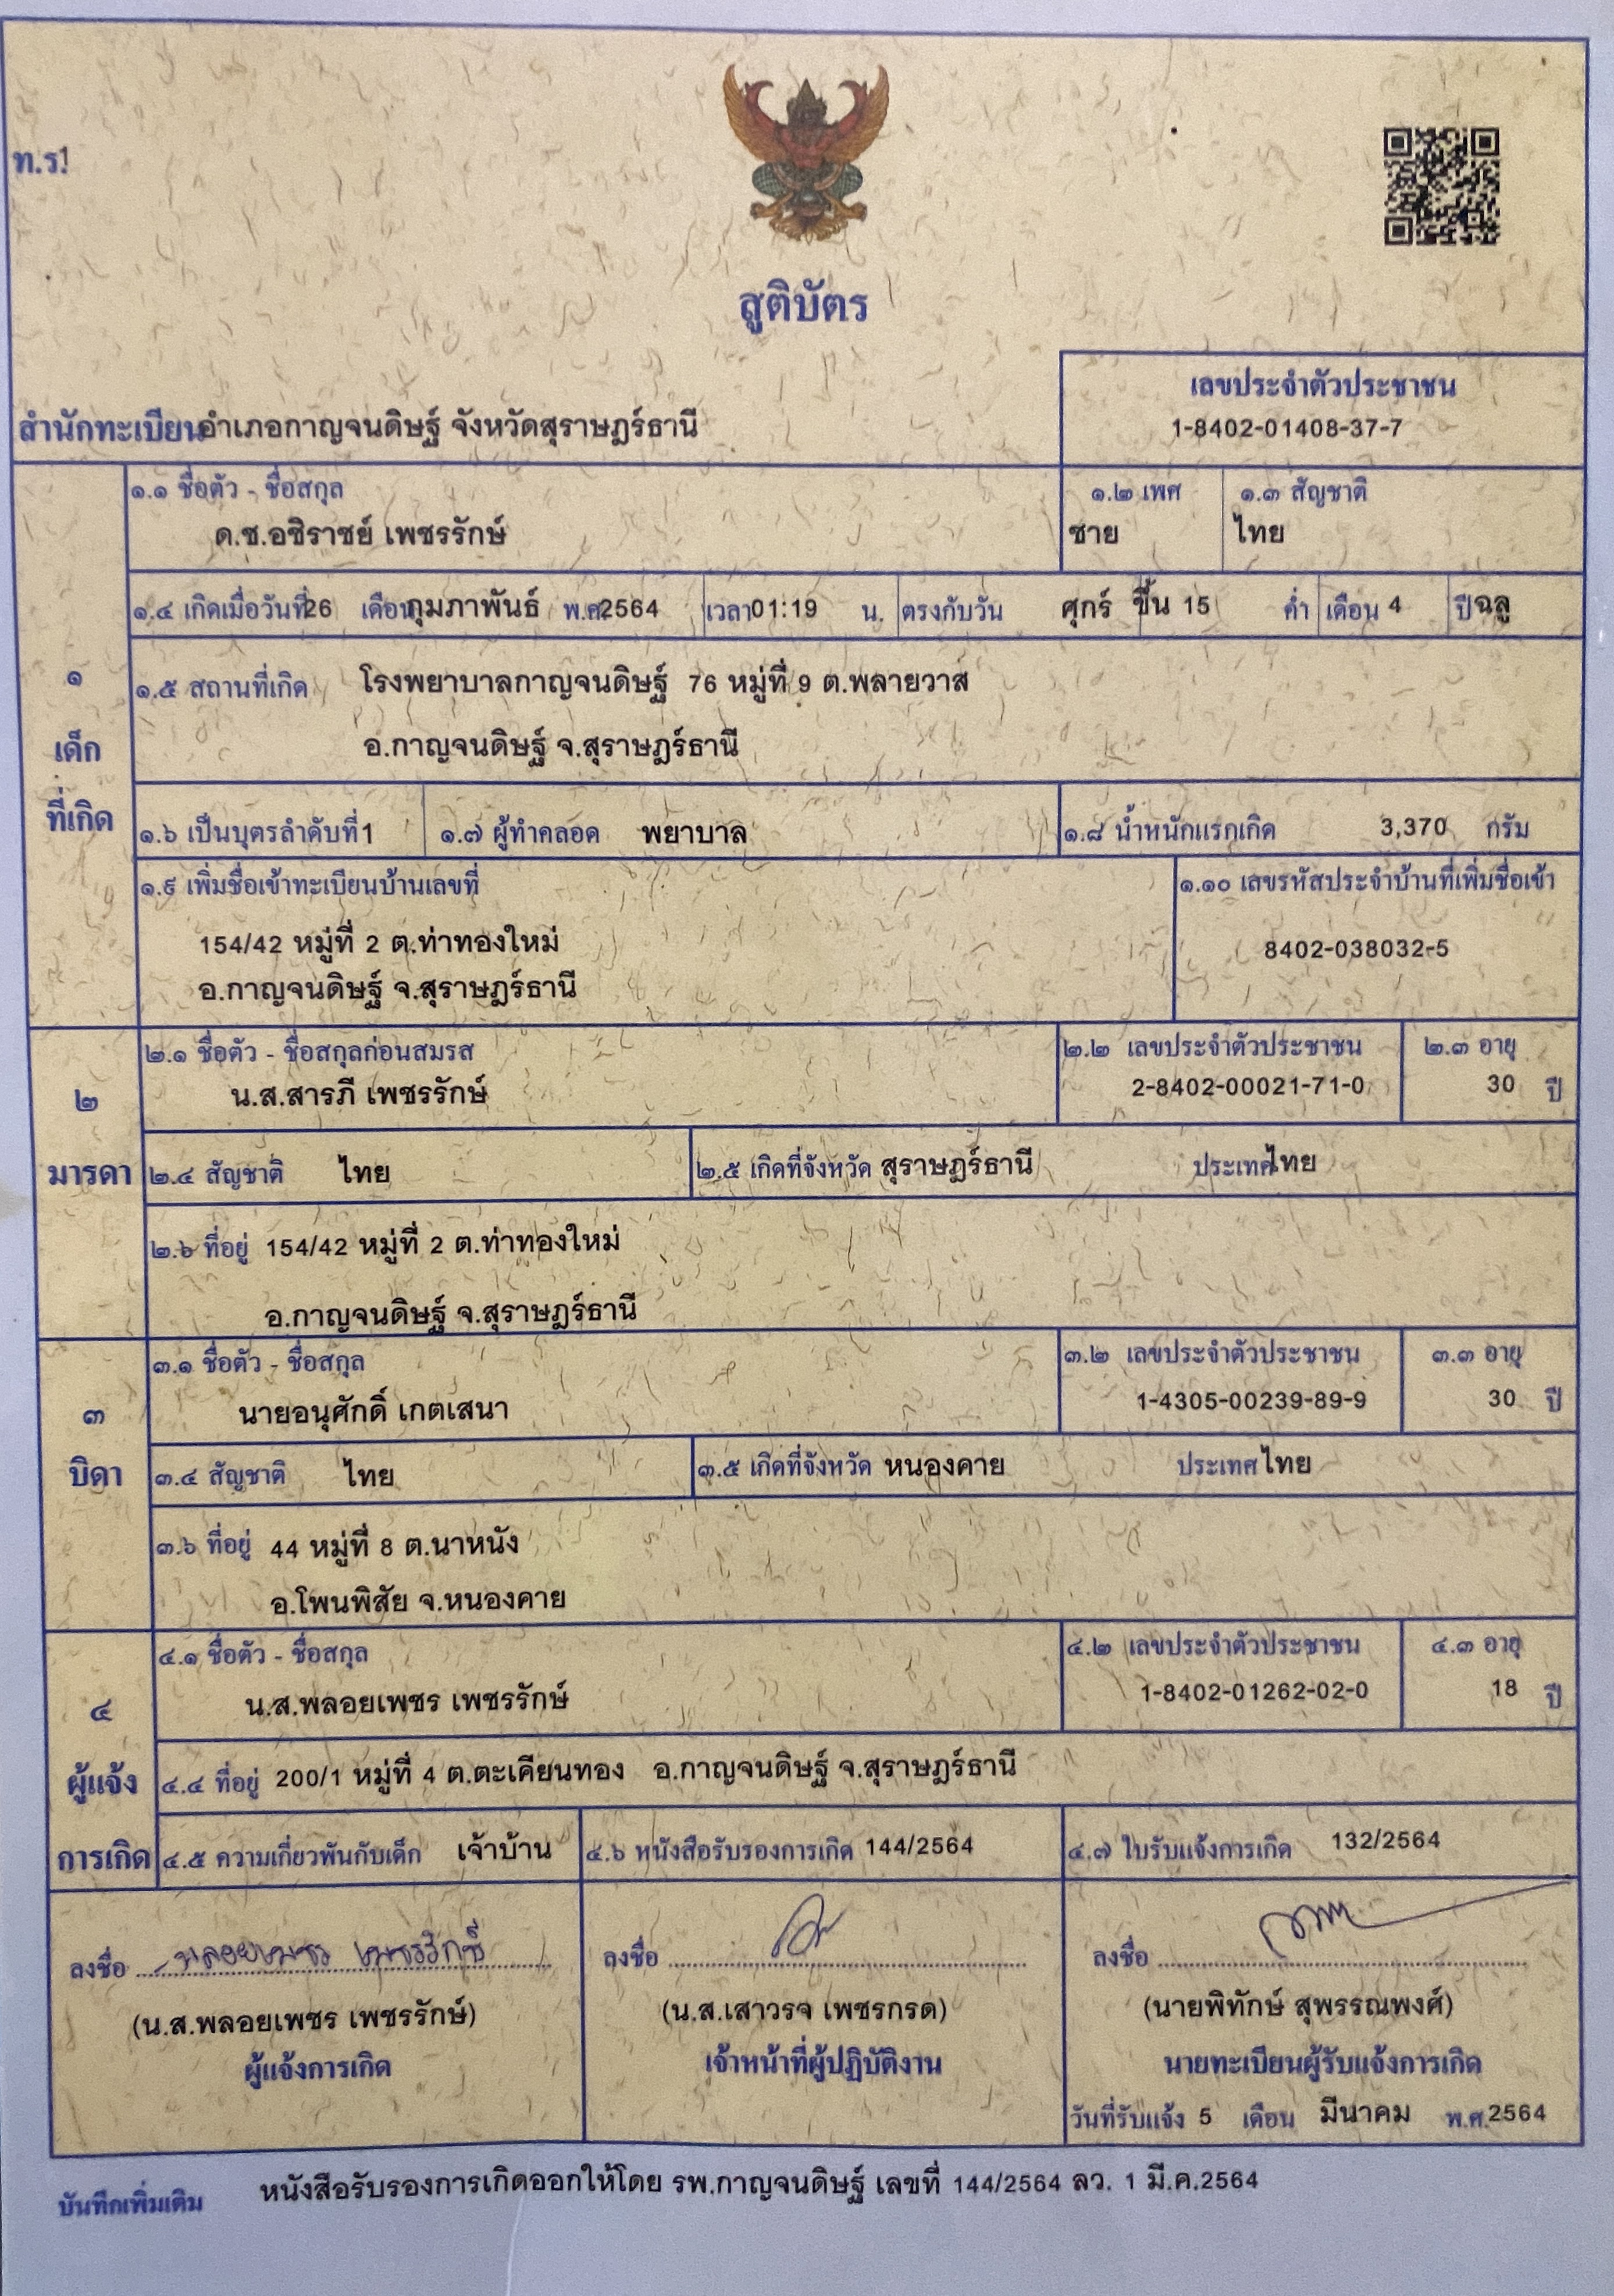 ท.ร.1
สูติบัตร
สำนักทะเบียน อำเภอกาญจนดิษฐ์ จังหวัดสุราษฎร์ธานี
เลขประจำตัวประชาชน
1-8402-01408-37-7
๑
เด็ก
ที่เกิด
๑.๑ ชื่อตัว - ชื่อสกุล
ด.ช.อชิราชย์ เพชรรักษ์
๑.๒ เพศ
ชาย
๑.๓ สัญชาติ
ไทย
๑.๔ เกิดเมื่อวันที่ 26 เดือน กุมภาพันธ์ พ.ศ. 2564 เวลา 01:19 น. ตรงกับวัน ศุกร์ ขึ้น 15 ค่ำ เดือน 4 ปี ฉลู
๑.๕ สถานที่เกิด โรงพยาบาลกาญจนดิษฐ์ 76 หมู่ที่ 9 ต.พลายวาส
อ.กาญจนดิษฐ์ จ.สุราษฎร์ธานี
๑.๖ เป็นบุตรลำดับที่ 1 ๑.๗ ผู้ทำคลอด พยาบาล ๑.๘ น้ำหนักแรกเกิด 3,370 กรัม
๑.๙ เพิ่มชื่อเข้าทะเบียนบ้านเลขที่
154/42 หมู่ที่ 2 ต.ท่าทองใหม่
อ.กาญจนดิษฐ์ จ.สุราษฎร์ธานี
๑.๑๐ เลขรหัสประจำบ้านที่เพิ่มชื่อเข้า
8402-038032-5
๒
มารดา
๒.๑ ชื่อตัว - ชื่อสกุลก่อนสมรส
น.ส.สารภี เพชรรักษ์
๒.๒ เลขประจำตัวประชาชน
2-8402-00021-71-0
๒.๓ อายุ
30 ปี
๒.๔ สัญชาติ ไทย ๒.๕ เกิดที่จังหวัด สุราษฎร์ธานี ประเทศ ไทย
๒.๖ ที่อยู่ 154/42 หมู่ที่ 2 ต.ท่าทองใหม่
อ.กาญจนดิษฐ์ จ.สุราษฎร์ธานี
๓
บิดา
๓.๑ ชื่อตัว - ชื่อสกุล
นายอนุศักดิ์ เกตเสนา
๓.๒ เลขประจำตัวประชาชน
1-4305-00239-89-9
๓.๓ อายุ
30 ปี
๓.๔ สัญชาติ ไทย ๓.๕ เกิดที่จังหวัด หนองคาย ประเทศ ไทย
๓.๖ ที่อยู่ 44 หมู่ที่ 8 ต.นาหนัง
อ.โพนพิสัย จ.หนองคาย
๔
ผู้แจ้ง
การเกิด
๔.๑ ชื่อตัว - ชื่อสกุล
น.ส.พลอยเพชร เพชรรักษ์
๔.๒ เลขประจำตัวประชาชน
1-8402-01262-02-0
๔.๓ อายุ
18 ปี
๔.๔ ที่อยู่ 200/1 หมู่ที่ 4 ต.ตะเคียนทอง อ.กาญจนดิษฐ์ จ.สุราษฎร์ธานี
๔.๕ ความเกี่ยวพันกับเด็ก เจ้าบ้าน ๔.๖ หนังสือรับรองการเกิด 144/2564 ๔.๗ ใบรับแจ้งการเกิด 132/2564
ลงชื่อ พลอยเพชร เพชรรักษ์
(น.ส.พลอยเพชร เพชรรักษ์)
ผู้แจ้งการเกิด
ลงชื่อ
(น.ส.เสาวรจ เพชรกรด)
เจ้าหน้าที่ผู้ปฏิบัติงาน
ลงชื่อ
(นายพิทักษ์ สุพรรณพงศ์)
นายทะเบียนผู้รับแจ้งการเกิด
วันที่รับแจ้ง 5 เดือน มีนาคม พ.ศ. 2564
บันทึกเพิ่มเติม หนังสือรับรองการเกิดออกให้โดย รพ.กาญจนดิษฐ์ เลขที่ 144/2564 ลว. 1 มี.ค.2564